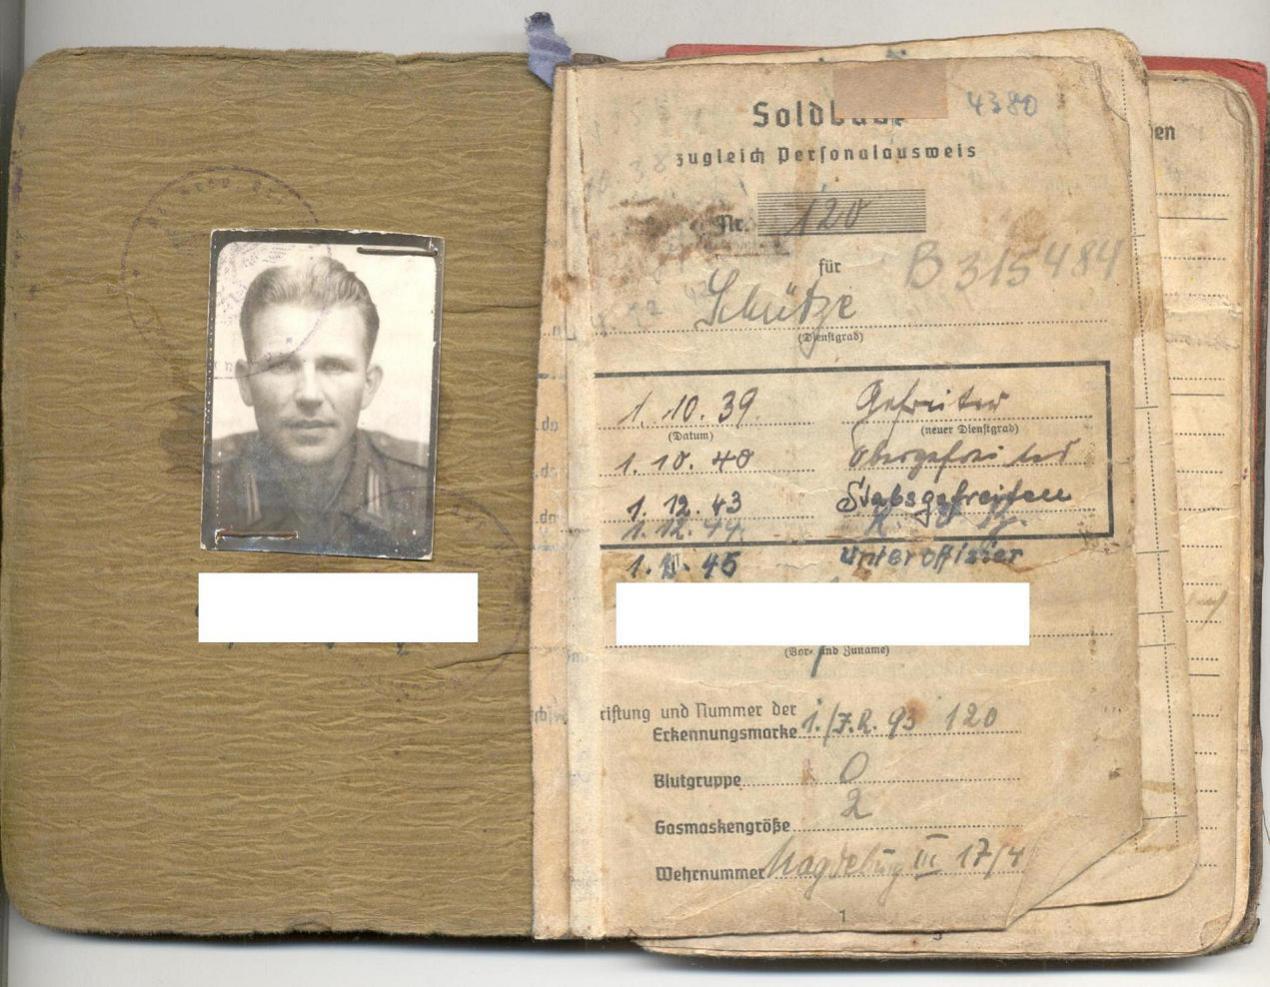 Soldbuch 4380
zugleich Personalausweis
Nr. 120
für B 315484
Schütze
(Dienstgrad)
1. 10. 39 Gefreiter
(Datum) (neuer Dienstgrad)
1. 10. 40 Obergefreiter
1. 12. 43 Stabsgefreiten
1. 12. 44
45 Unteroffizier
(Vor- und Zuname)
und Nummer der
Erkennungsmarke 1./J.R. 93 120
Blutgruppe O
2
Gasmaskengröße
Wehrnummer Magdeburg III 17/4
1
en